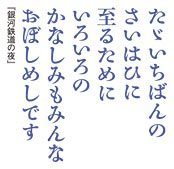 たゞいちばんの
さいはひに
至るために
いろいろの
かなしみもみんな
おぼしめしです
『銀河鉄道の夜』